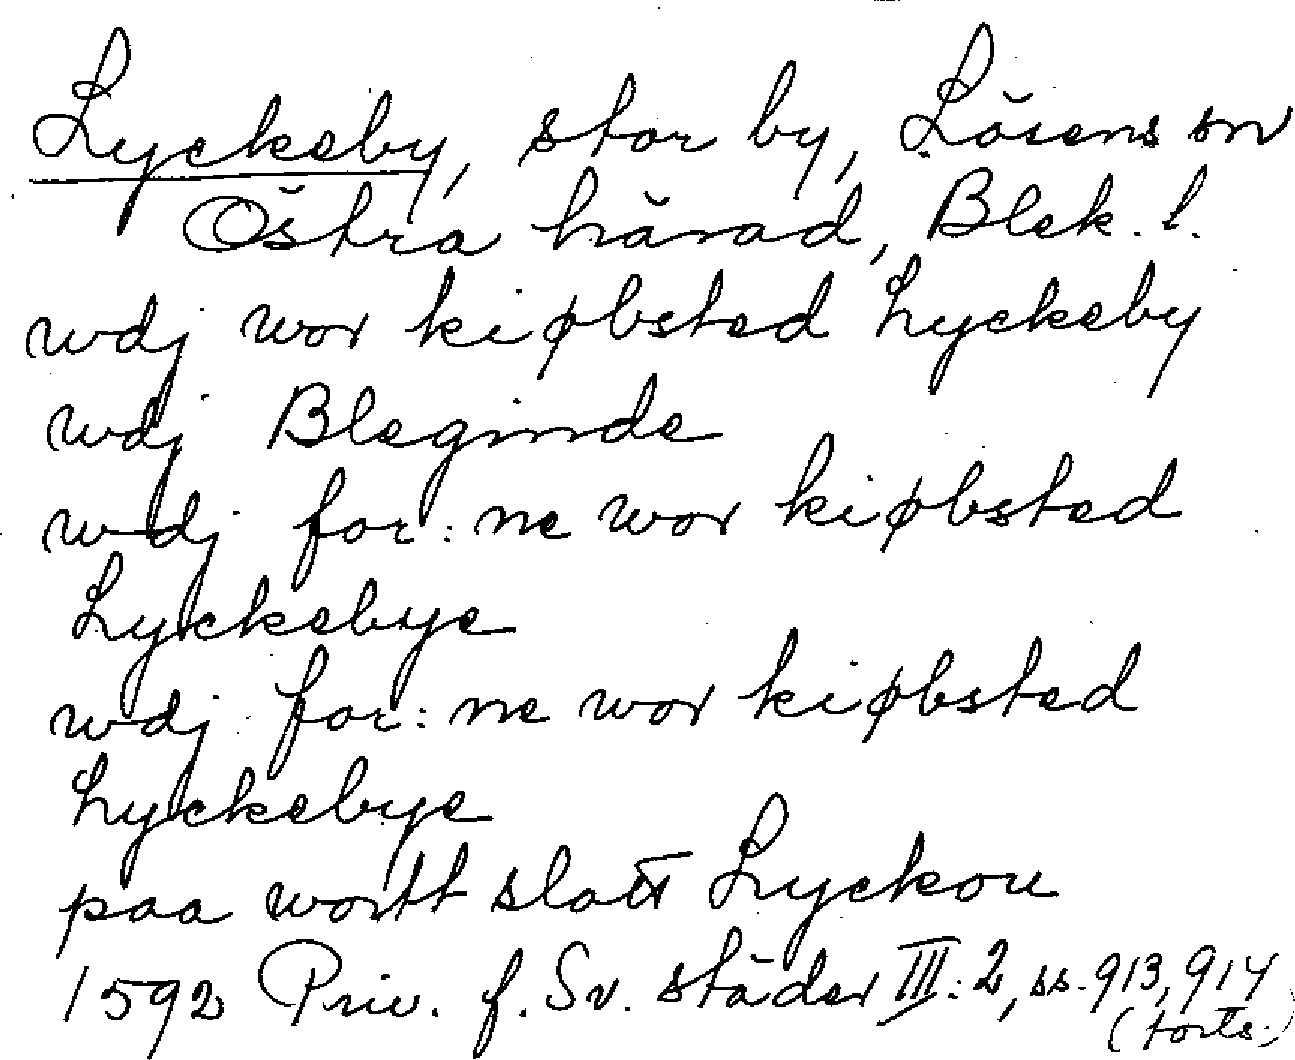 Lyckeby, stor by, Lösens sn
Östra härad, Blek. l.
wdj wor kiøbsted Lyckeby
wdj Bleginde
wdj for: ne wor kiøbsted
Lyckebye
wdj for: ne wor kiøbsted
Lyckebye
paa wortt slott Lyckou
1592 Priv. f. Sv. städer III: 2, ss. 913, 914
(forts.)